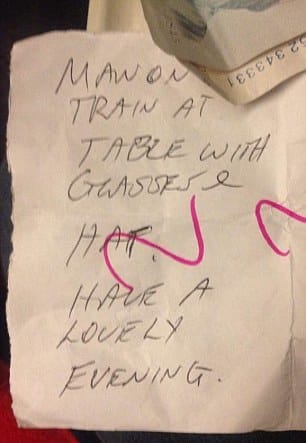 MAN ON
TRAIN AT
TABLE WITH
GLASSES &
HAT.
HAVE A
LOVELY
EVENING.
52 34331